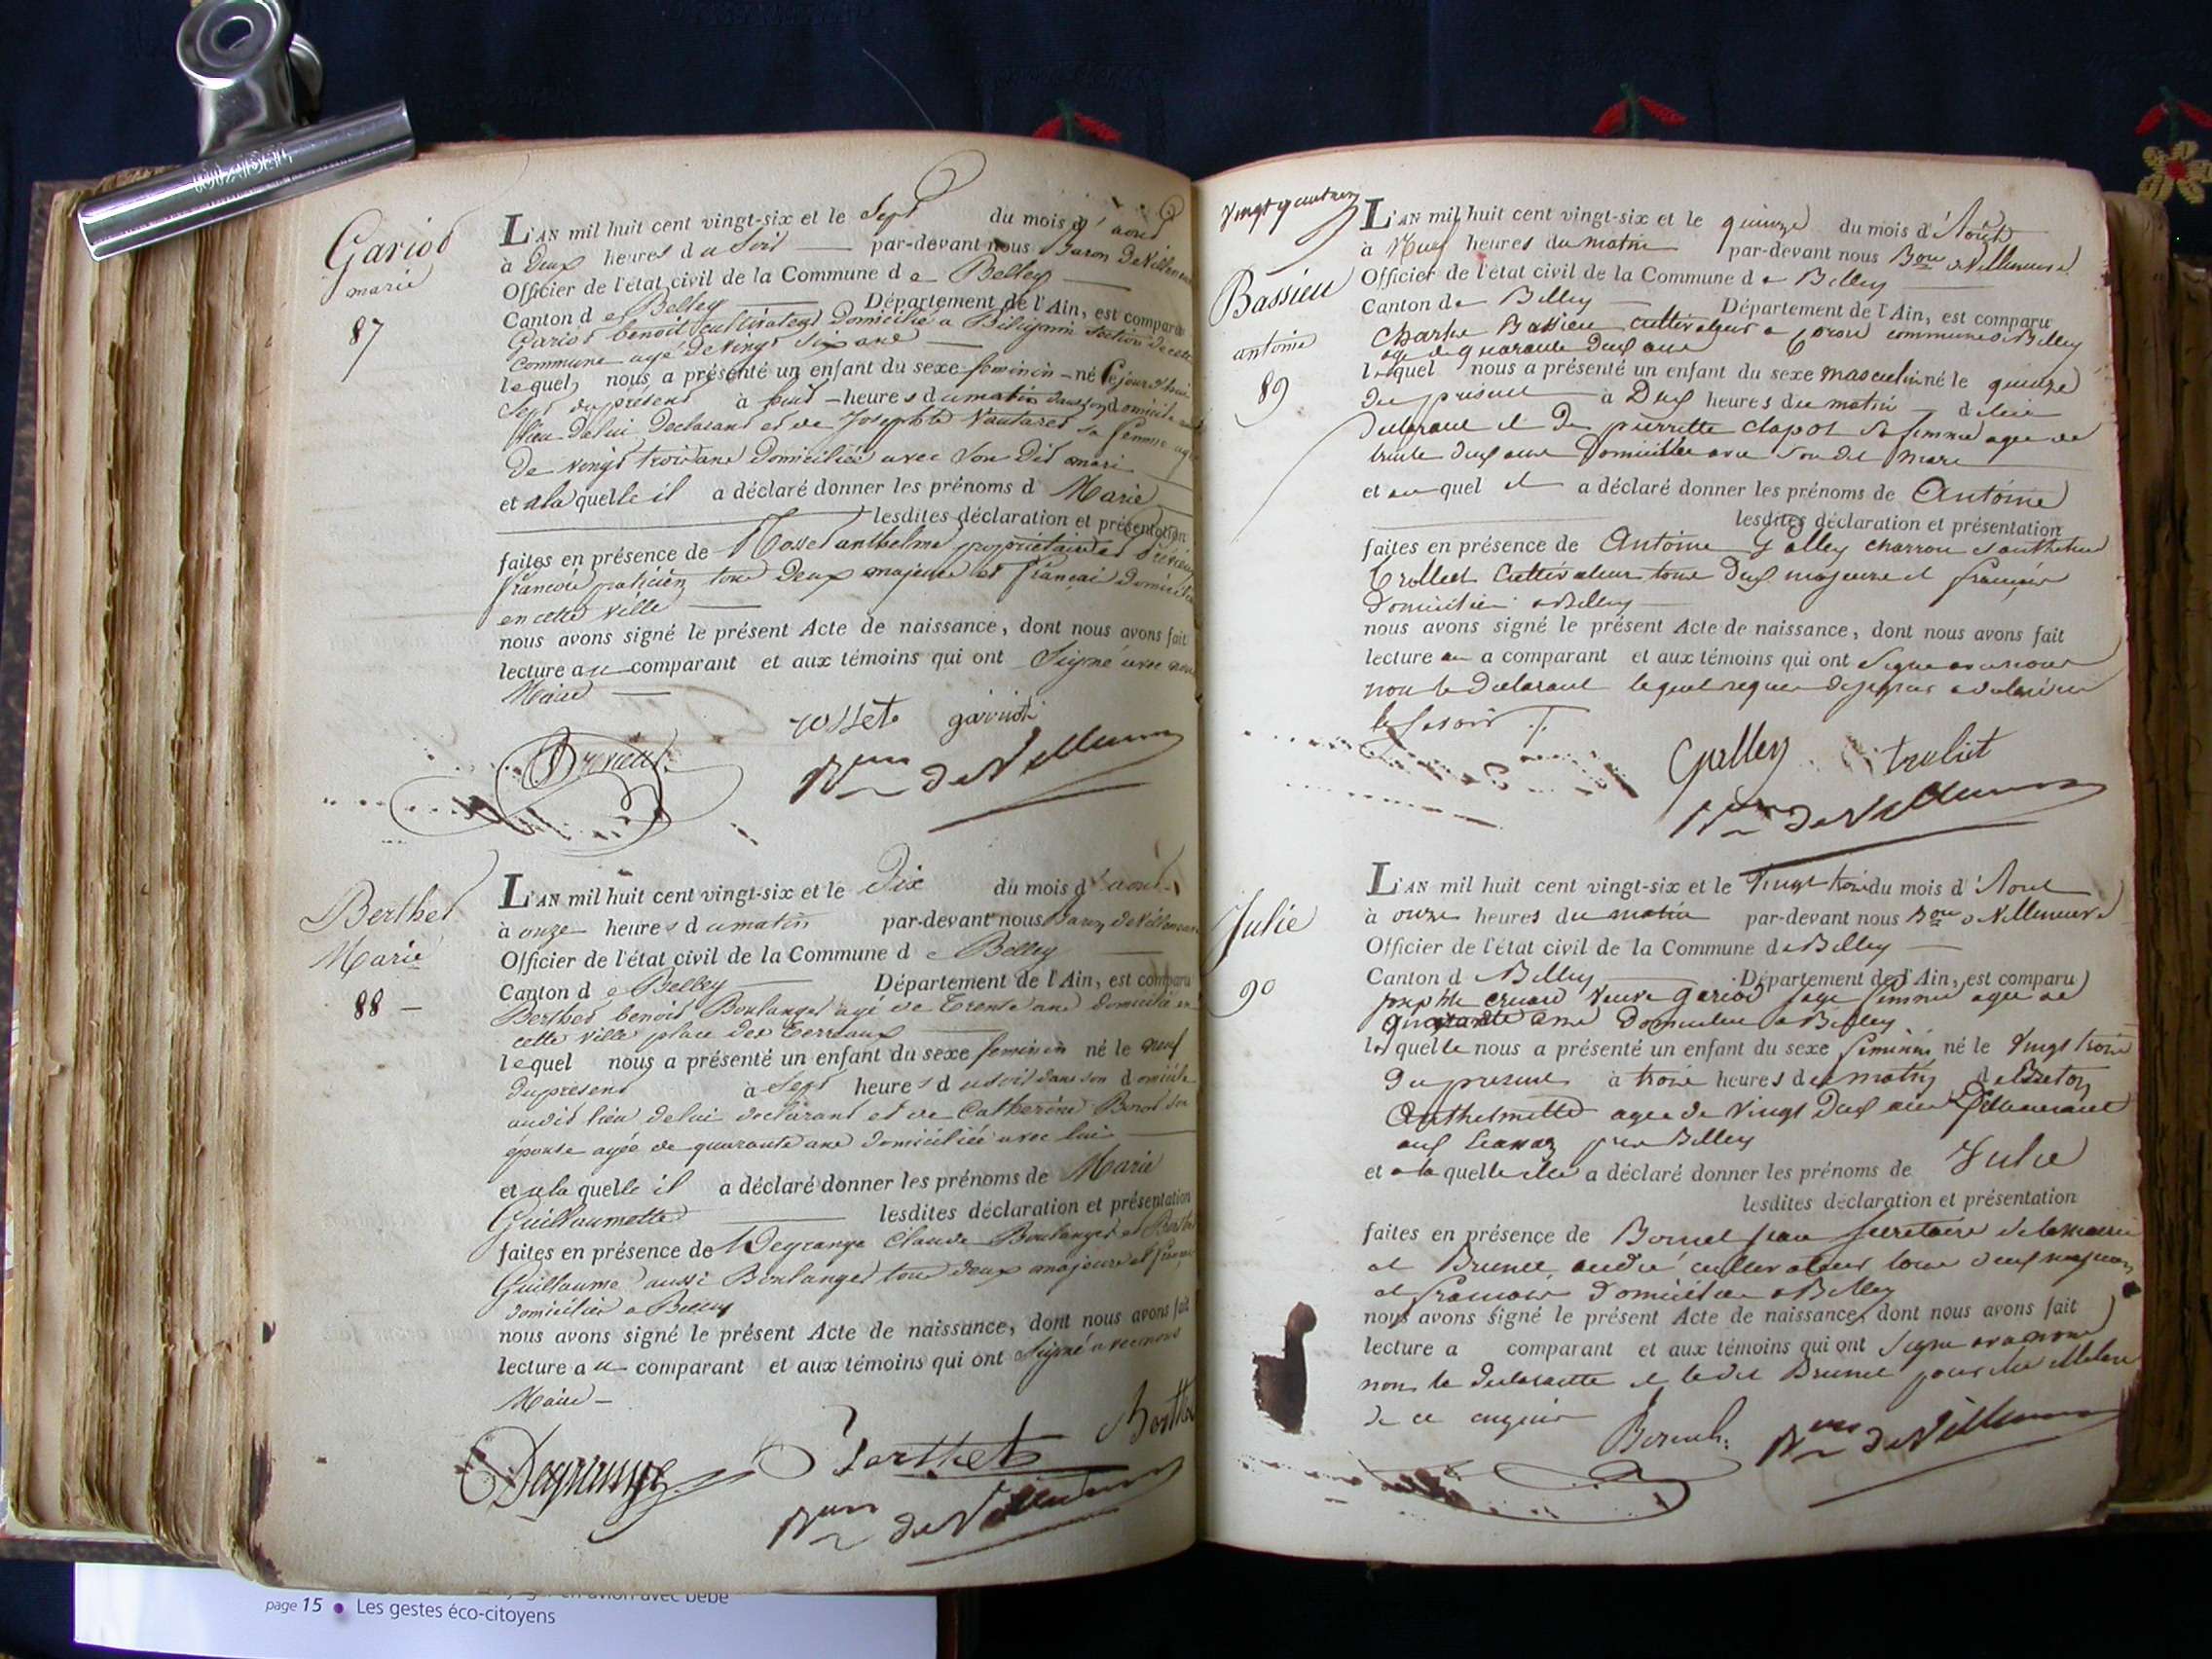 Gariod
marie
87
L'AN mil huit cent vingt-six et le Sept du mois d'aoust
à Deux heures du Soir par-devant nous Baron De Villeneuve
Officier de l'état civil de la Commune de Belley
Canton de Belley Département de l'Ain, est comparu
Gariod benoit cultivateur Domicilié a section de cette
commune agé De vingt six ans
lequel nous a présenté un enfant du sexe feminin né cejourd'hui
Sept du présent à huit heures du matin dans son domicile
lieu De lui Declarant et de Josephte Vautaret sa femme agée
De vingt trois ans Domiciliée avec Son Dit mari
et a laquelle il a déclaré donner les prénoms d Marie
lesdites déclaration et présentation
faites en présence de Rosset anthelme propriétaire et
françois praticien tous Deux majeurs et français Domiciliés
en cette ville
nous avons signé le présent Acte de naissance, dont nous avons fait
lecture au comparant et aux témoins qui ont Signé avec nous
Maire
rosset gariod
Bon de Villeneuve
Berthet
Marie
88
L'AN mil huit cent vingt-six et le Dix du mois d'aoust
à onze heures du matin par-devant nous Baron de Villeneuve
Officier de l'état civil de la Commune de Belley
Canton de Belley Département de l'Ain, est comparu
Berthet benoit Boulanger agé de Trente ans domicilié en
cette ville place des Terreaux
lequel nous a présenté un enfant du sexe feminin né le neuf
du présent à Sept heures du soir dans son domicile
audit lieu de lui declarant et de Catherine Benod son
épouse agée de quarante ans domiciliée avec lui
et a laquelle il a déclaré donner les prénoms de Marie
Guillaumette lesdites déclaration et présentation
faites en présence de Degrange Claude Boulanger et
Guillaume aussi Boulanger tous deux majeurs et français
domiciliés a Belley
nous avons signé le présent Acte de naissance, dont nous avons fait
lecture au comparant et aux témoins qui ont Signé avec nous
Maire
Degrange Berthet
Bon de Villeneuve
page 15 • Les gestes éco-citoyens
Bassieu
antoine
89
L'AN mil huit cent vingt-six et le quinze du mois d'Aout
à Neuf heures du matin par-devant nous Bon de Villeneuve
Officier de l'état civil de la Commune de Belley
Canton de Belley Département de l'Ain, est comparu
Charles Bassieu cultivateur a Coron commune de Belley
age de quarante Deux ans
lequel nous a présenté un enfant du sexe masculin né le quinze
du present à Deux heures du matin de lui
Declarant et De pierrette Clapot sa femme agee de
trente deux ans Domiciliee avec son dit Mari
et auquel il a déclaré donner les prénoms de Antoine
lesdites déclaration et présentation
faites en présence de Antoine Galley charron et anthelme
Trolliet Cultivateur tous Deux majeurs et français
Domiciliés a Belley
nous avons signé le présent Acte de naissance, dont nous avons fait
lecture au a comparant et aux témoins qui ont signé avec nous
non le Declarant lequel requis de signer a declaré ne
le savoir
Galley troliet
Bon de Villeneuve
Julie
90
L'AN mil huit cent vingt-six et le Vingt trois du mois d'Aout
à onze heures du matin par-devant nous Bon de Villeneuve
Officier de l'état civil de la Commune de Belley
Canton d Belley Département de l'Ain, est comparu
josephte veuve Gariod sage femme agee de
ans Domiciliee a Belley
laquelle nous a présenté un enfant du sexe feminin né le Vingt trois
du present à trois heures du matin de Breton
Anthelmette agee de vingt Deux ans
pres Belley
et a laquelle elle a déclaré donner les prénoms de Julie
lesdites déclaration et présentation
faites en présence de Bornet jean secretaire de la mairie
et Brunet andré cultivateur tous deux majeurs
et francais Domiciliés a Belley
nous avons signé le présent Acte de naissance, dont nous avons fait
lecture a comparant et aux témoins qui ont signé avec nous
non la declarante et ledit Brunet pour
de ce enquis
Bon de Villeneuve